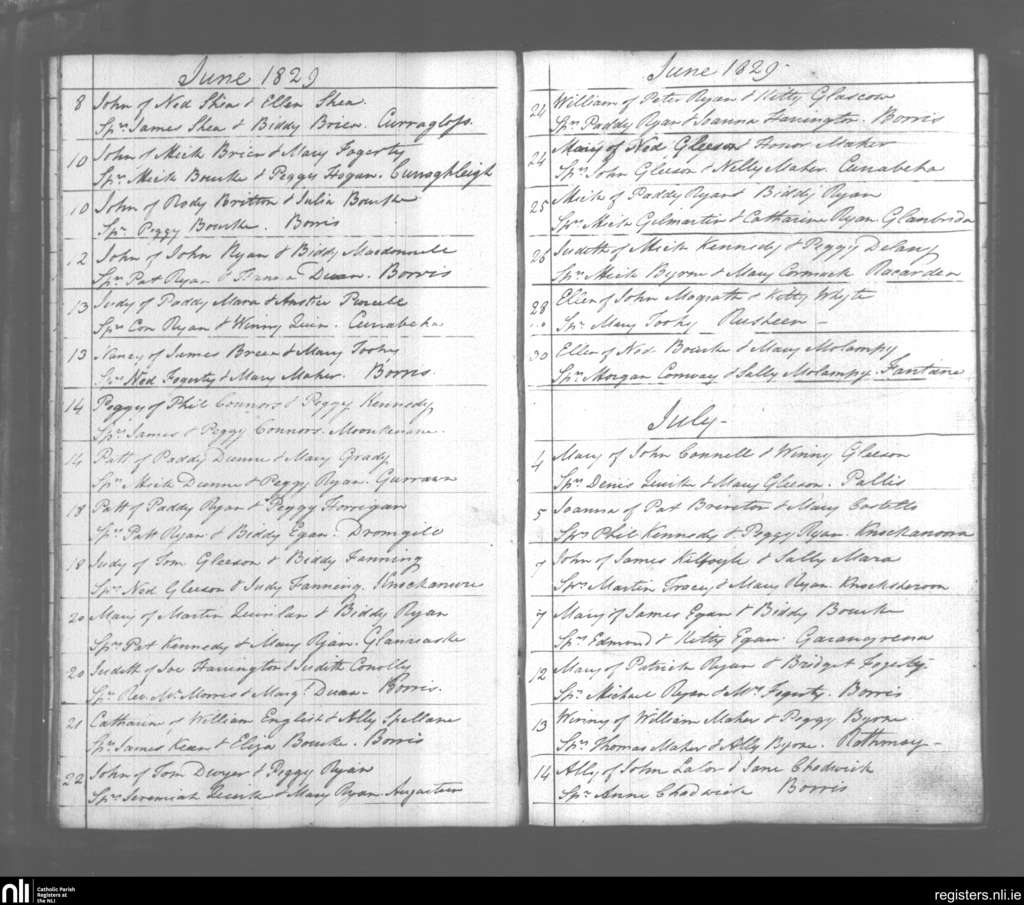 June 1829
8 John of Ned Shea & Ellen Shea.
Sprs James Shea & Biddy Brien. Curraglass
10 John of Mick Brien & Mary Fogerty
Sprs Mick Bourke & Peggy Hogan. Curraghleigh
10 John of Rody Britton & Julia Bourke
Spr. Peggy Bourke. Borris
12 John of John Ryan & Biddy Macdonnell
Sprs Pat Ryan & Duan. Borris
13 Judy of Paddy Mara & Anstice Purcell
Sprs Con Ryan & Winny Quin. Currabeha
13 Nancy of James Breen & Mary Toohy
Sprs Ned Fogerty & Mary Maher. Borris.
14 Peggy of Phil Connors & Peggy Kennedy
Sprs James & Peggy Connors.
14 Patt of Paddy Dunne & Mary Grady
Sprs Mick Dunne & Peggy Ryan. Gurrawn
18 Patt of Paddy Ryan & Peggy Horrigan
Sprs Patt Ryan & Biddy Egan. Dromgill
18 Judy of Tom Gleeson & Biddy Fanning
Sprs Ned Gleeson & Judy Fanning. Knockanure
20 Mary of Martin Quinlan & Biddy Ryan
Sprs Pat Kennedy & Mary Ryan.
20 Judith of Joe Harrington & Judith Conolly
Sprs Rev. Mr. Morres & Marg. Duan. Borris.
21 Catharine of William English & Ally Spellane
Sprs James Kean & Eliza Bourke. Borris
22 John of Tom Dwyer & Peggy Ryan
Sprs Jeremiah Quirk & Mary Ryan.
June 1829
24 William of Peter Ryan & Kitty Glascow
Sprs Paddy Ryan & Joanna Harrington. Borris
24 Mary of Ned Gleeson & Honor Maher
Sprs John Gleeson & Nelly Maher. Currabeha
25 Mick of Paddy Ryan & Biddy Ryan
Sprs Mick Gilmartin & Catharine Ryan.
26 Judith of Mick Kennedy & Peggy Delany
Sprs Mick Byrne & Mary Cormack Racardon
28 Ellen of John Magrath & Kitty Whyte
Spr. Mary Toohy Rusheen -
30 Ellen of Ned Bourke & Mary Molampy
Sprs Morgan Conway & Sally Molampy. Fantane
July -
4 Mary of John Connell & Winny Gleeson
Sprs Denis Quirke & Mary Gleeson. Pallis
5 Joanna of Pat Brereton & Mary Costello
Sprs Phil Kennedy & Peggy Ryan.
7 John of James Kilfoyle & Sally Mara
Sprs Martin Tracey & Mary Ryan.
7 Mary of James Egan & Biddy Bourke
Sprs Edmond & Kitty Egan.
12 Mary of Patrick Ryan & Bridget Fogerty.
Sprs Michael Ryan & Mrs Fogerty. Borris
13 Winny of William Maher & Peggy Byrne.
Sprs Thomas Maher & Ally Byrne. Rathmoy -
14 Ally of John Lalor & Jane Chadwick
Spr. Anne Chadwick Borris
nli
Catholic Parish
Registers at
the NLI
registers.nli.ie